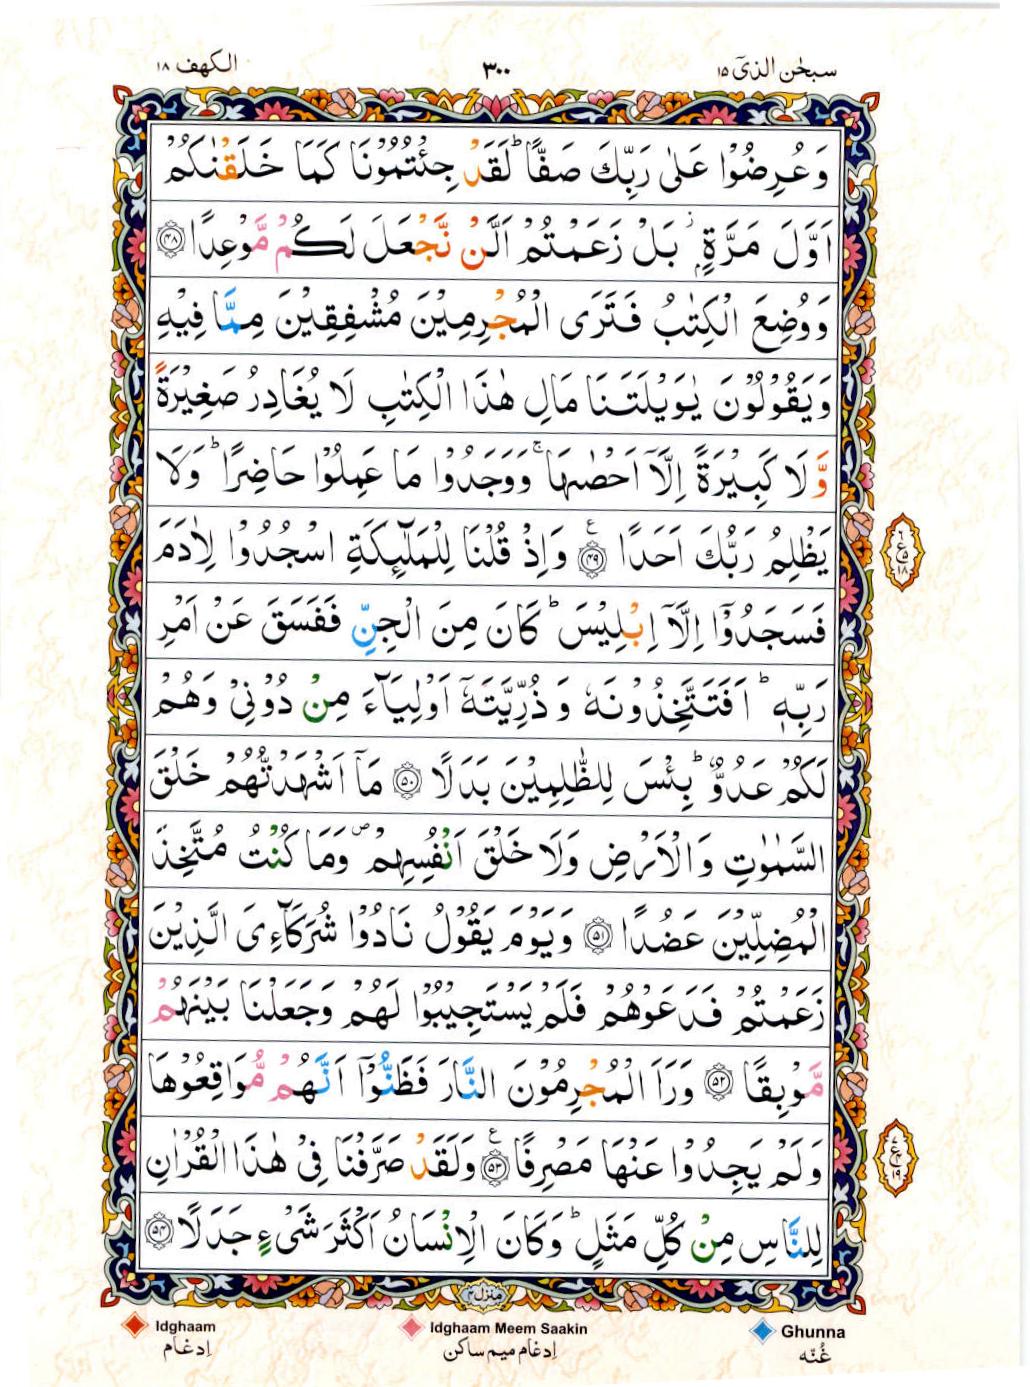 سبحٰن الذیٓ ۱۵
۳۰۰
الکهف ۱۸
وَعُرِضُوۡا عَلٰى رَبِّكَ صَفًّا ؕ لَقَدۡ جِئۡتُمُوۡنَا كَمَا خَلَقۡنٰكُمۡ
اَوَّلَ مَرَّةٍۭ ۫ بَلۡ زَعَمۡتُمۡ اَلَّنۡ نَّجۡعَلَ لَـكُمۡ مَّوۡعِدًا ﴿۴۸﴾
وَوُضِعَ الۡكِتٰبُ فَتَرَى الۡمُجۡرِمِيۡنَ مُشۡفِقِيۡنَ مِمَّا فِيۡهِ
وَيَقُوۡلُوۡنَ يٰوَيۡلَـتَـنَا مَالِ هٰذَا الۡكِتٰبِ لَا يُغَادِرُ صَغِيۡرَةً
وَّلَا كَبِيۡرَةً اِلَّاۤ اَحۡصٰٮهَا ۚ وَوَجَدُوۡا مَا عَمِلُوۡا حَاضِرًا ؕ وَلَا
يَظۡلِمُ رَبُّكَ اَحَدًا ﴿۴۹﴾ ع وَاِذۡ قُلۡنَا لِلۡمَلٰٓٮِٕكَةِ اسۡجُدُوۡا لِاٰدَمَ
فَسَجَدُوۡۤا اِلَّاۤ اِبۡلِيۡسَ ؕ كَانَ مِنَ الۡجِنِّ فَفَسَقَ عَنۡ اَمۡرِ
رَبِّهٖ ؕ اَفَتَـتَّخِذُوۡنَهٗ وَذُرِّيَّتَهٗۤ اَوۡلِيَآءَ مِنۡ دُوۡنِىۡ وَهُمۡ
لَـكُمۡ عَدُوٌّ ؕ بِئۡسَ لِلظّٰلِمِيۡنَ بَدَلًا ﴿۵۰﴾ مَاۤ اَشۡهَدْتُّهُمۡ خَلۡقَ
السَّمٰوٰتِ وَالۡاَرۡضِ وَلَا خَلۡقَ اَنۡفُسِهِمۡ ص وَمَا كُنۡتُ مُتَّخِذَ
الۡمُضِلِّيۡنَ عَضُدًا ﴿۵۱﴾ وَيَوۡمَ يَقُوۡلُ نَادُوۡا شُرَكَآءِىَ الَّذِيۡنَ
زَعَمۡتُمۡ فَدَعَوۡهُمۡ فَلَمۡ يَسۡتَجِيۡبُوۡا لَهُمۡ وَجَعَلۡنَا بَيۡنَهُمۡ
مَّوۡبِقًا ﴿۵۲﴾ وَرَاَ الۡمُجۡرِمُوۡنَ النَّارَ فَظَنُّوۡۤا اَنَّهُمۡ مُّوَاقِعُوۡهَا
وَلَمۡ يَجِدُوۡا عَنۡهَا مَصۡرِفًا ﴿۵۳﴾ ع وَلَقَدۡ صَرَّفۡنَا فِىۡ هٰذَا الۡقُرۡاٰنِ
لِلنَّاسِ مِنۡ كُلِّ مَثَلٍ ؕ وَكَانَ الۡاِنۡسَانُ اَكۡثَرَ شَىۡءٍ جَدَلًا ﴿۵۴﴾
منزل ۴
Idghaam
Idghaam Meem Saakin
Ghunna
اِدغام
اِدغام میم ساکن
غُنّه